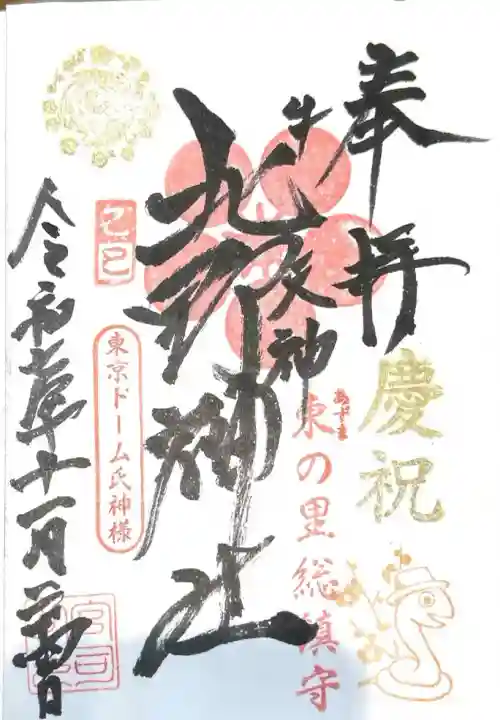 奉拝
慶祝
あずま
東の里総鎮守
牛天神
北野神社
東京ドーム氏神様
令和七年十一月